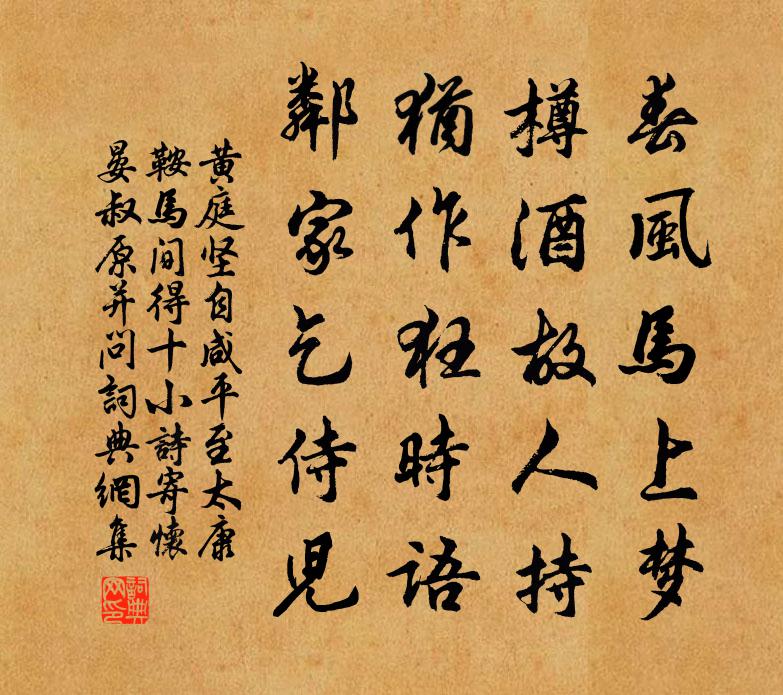 春風馬上梦
樽酒故人持
猶作狂時語
鄰家乞侍児
黄庭坚自咸平至太康
鞍馬间得十小詩寄懷
晏叔原并问詞典網集
詞典
网印